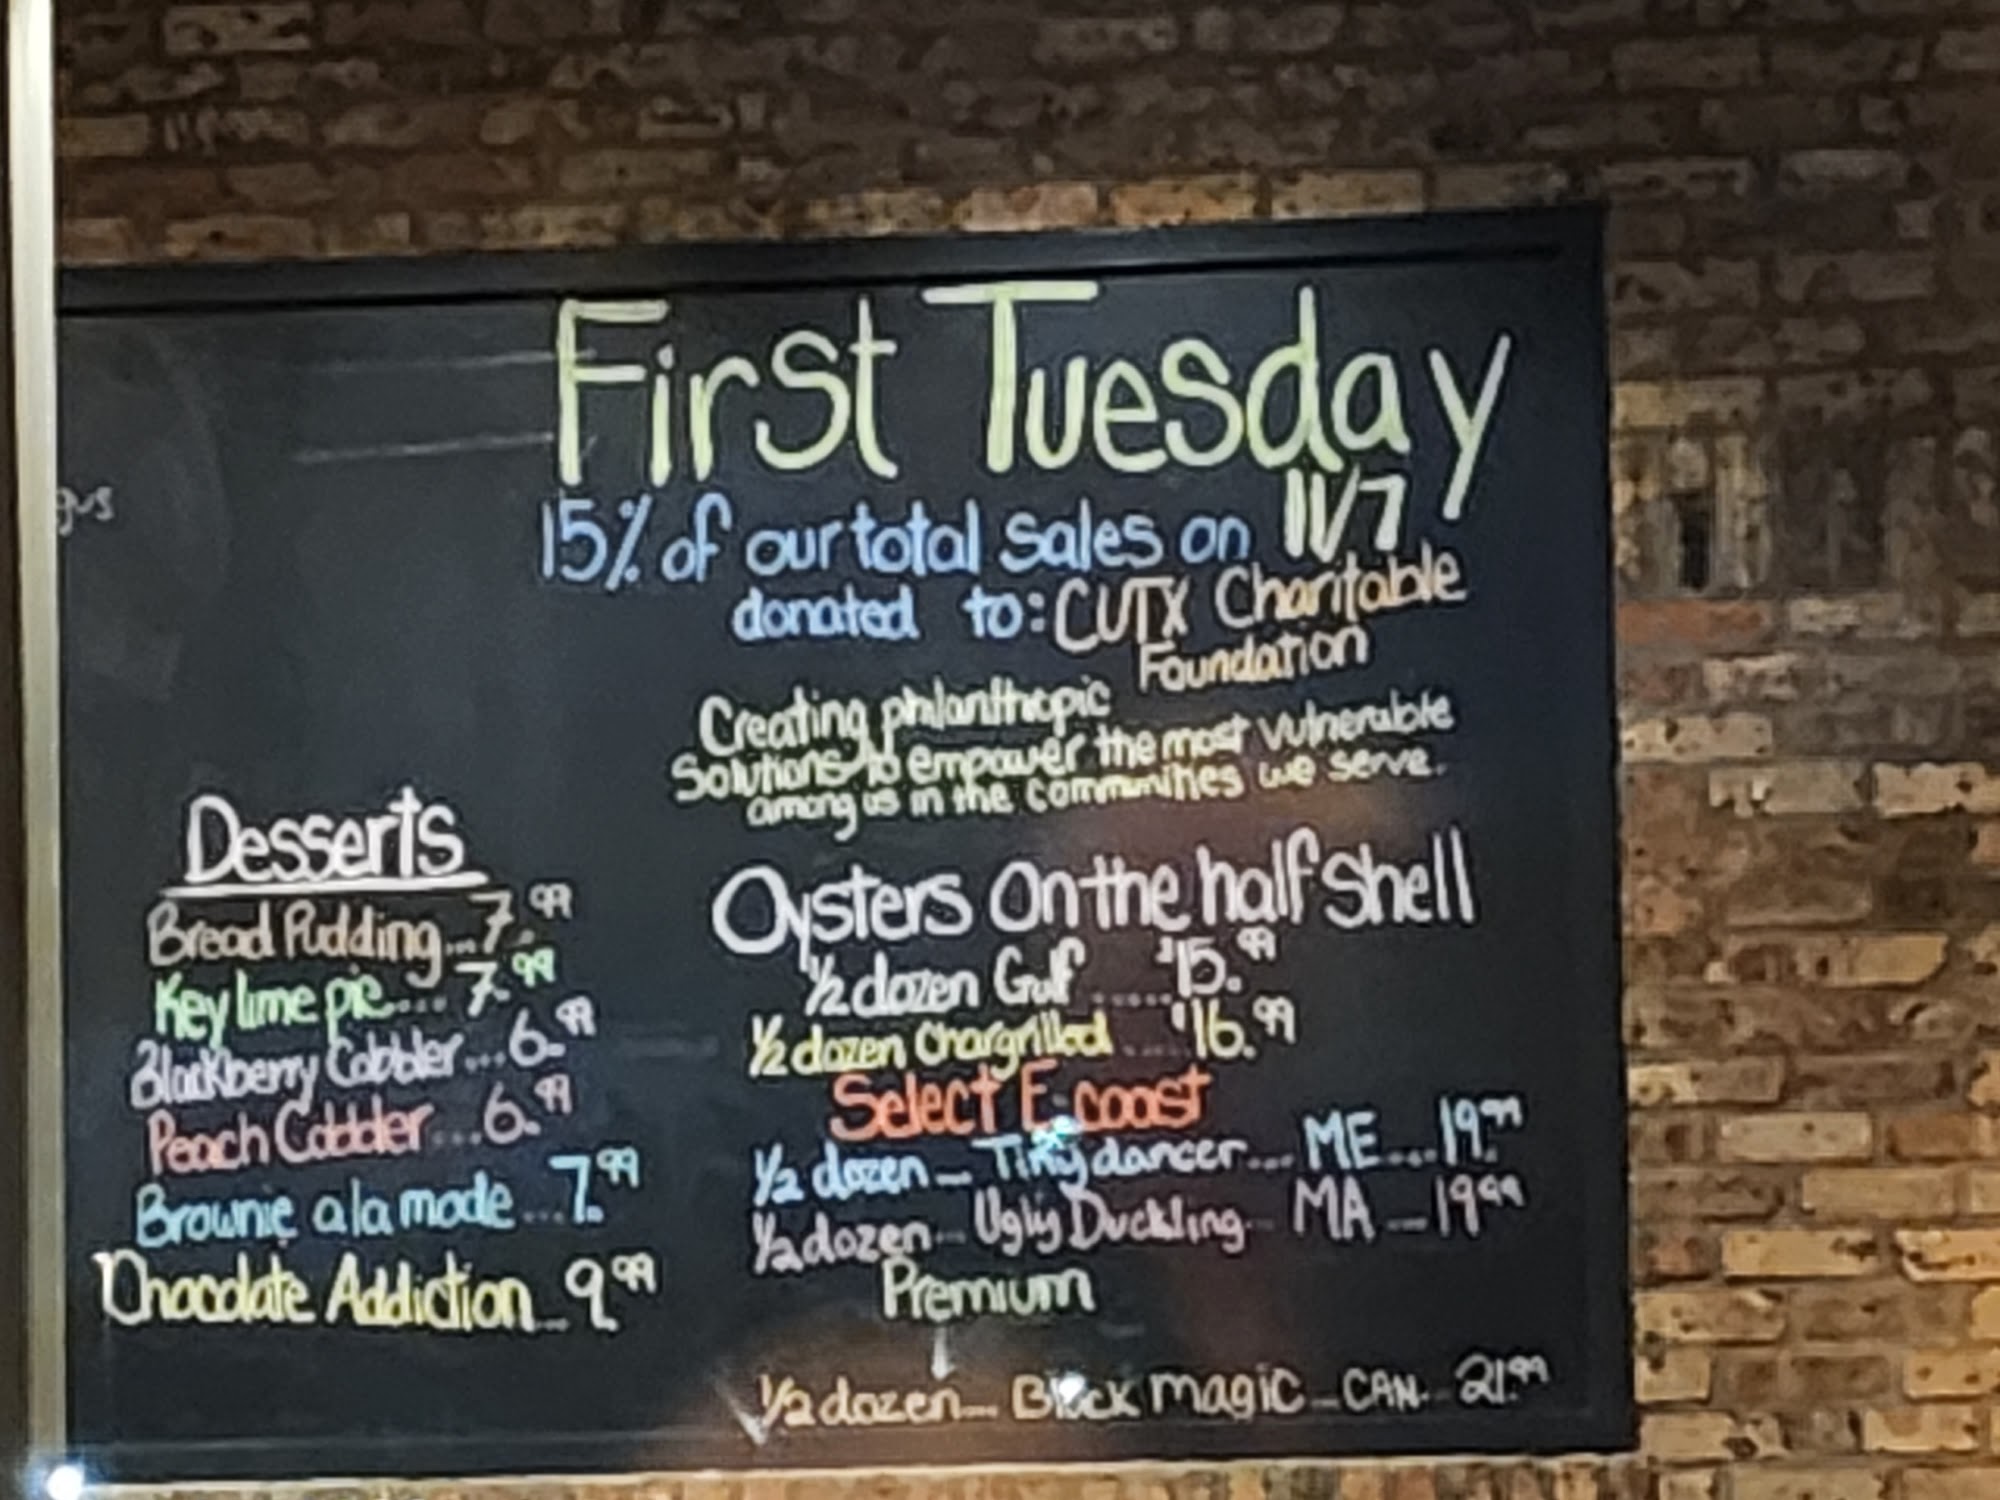 First Tuesday
15% of our total sales on 11/7
donated to: CUTX Charitable
Foundation
Creating philanthropic
Solutions to empower the most vulnerable
among us in the communities we serve.
gus
Desserts
Bread Pudding...7.99
Key lime pie.... 7.99
Blackberry Cobbler...6.99
Peach Cobbler...6.99
Brownie a la mode...7.99
Chocolate Addiction...9.99
Oysters On the half Shell
1/2 dozen Gulf ..... $15.99
1/2 dozen Chargrilled .... $16.99
Select E. coast
1/2 dozen... Tiny dancer.... ME....19.99
1/2 dozen... Ugly Duckling... MA ...19.99
Premium
1/2 dozen... Black magic...CAN... 21.99